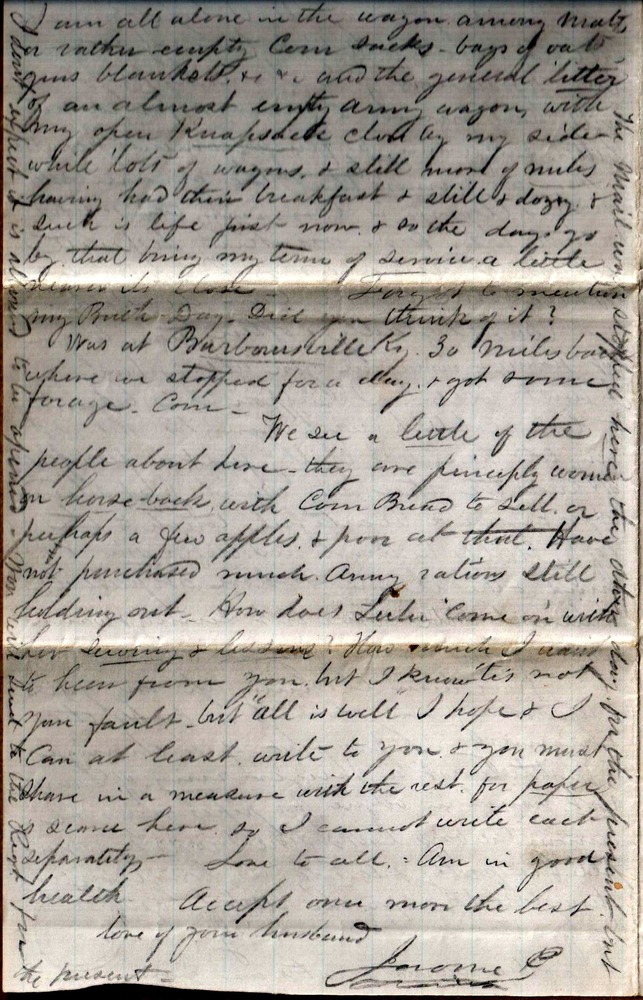 I am all alone in the wagon among malt,
or rather empty Corn sacks - bags of oats
guns blankets, & & . and the general litter
of an almost empty army wagon, with
my open Knapsack close by my side -
while lots of wagons, & still more of mules
having had their breakfast & still & dozy &
such is life just now. & so the days go
by. that bring my term of service a little
nearer its close - Forgot to mention
my Birth Day. Did you think of it?
Was at Barboursville Ky. 30 miles back
where we stopped for a day. & got some
forage - Corn -
We see a little of the
people about here - they are principly women
on horse back, with Corn Bread to sell. or
perhaps a few apples. & poor at that. Have
not purchased much. Army rations still
holding out - How does come on with
her sewing & lessons? How much I want
to hear from you. but I know 'tis not
your fault - but "all is well" I hope & I
Can at least write to you. & you must
share in a measure with the rest. for paper
is scarce here so I cannot write each
separately - Love to all. - Am in good
health Accept once more the best
love of your husband
Jerome
The Mail was stopped here the other day for the present. but
I dont expect it is always to be opened - You will send to the Regt for
the present -